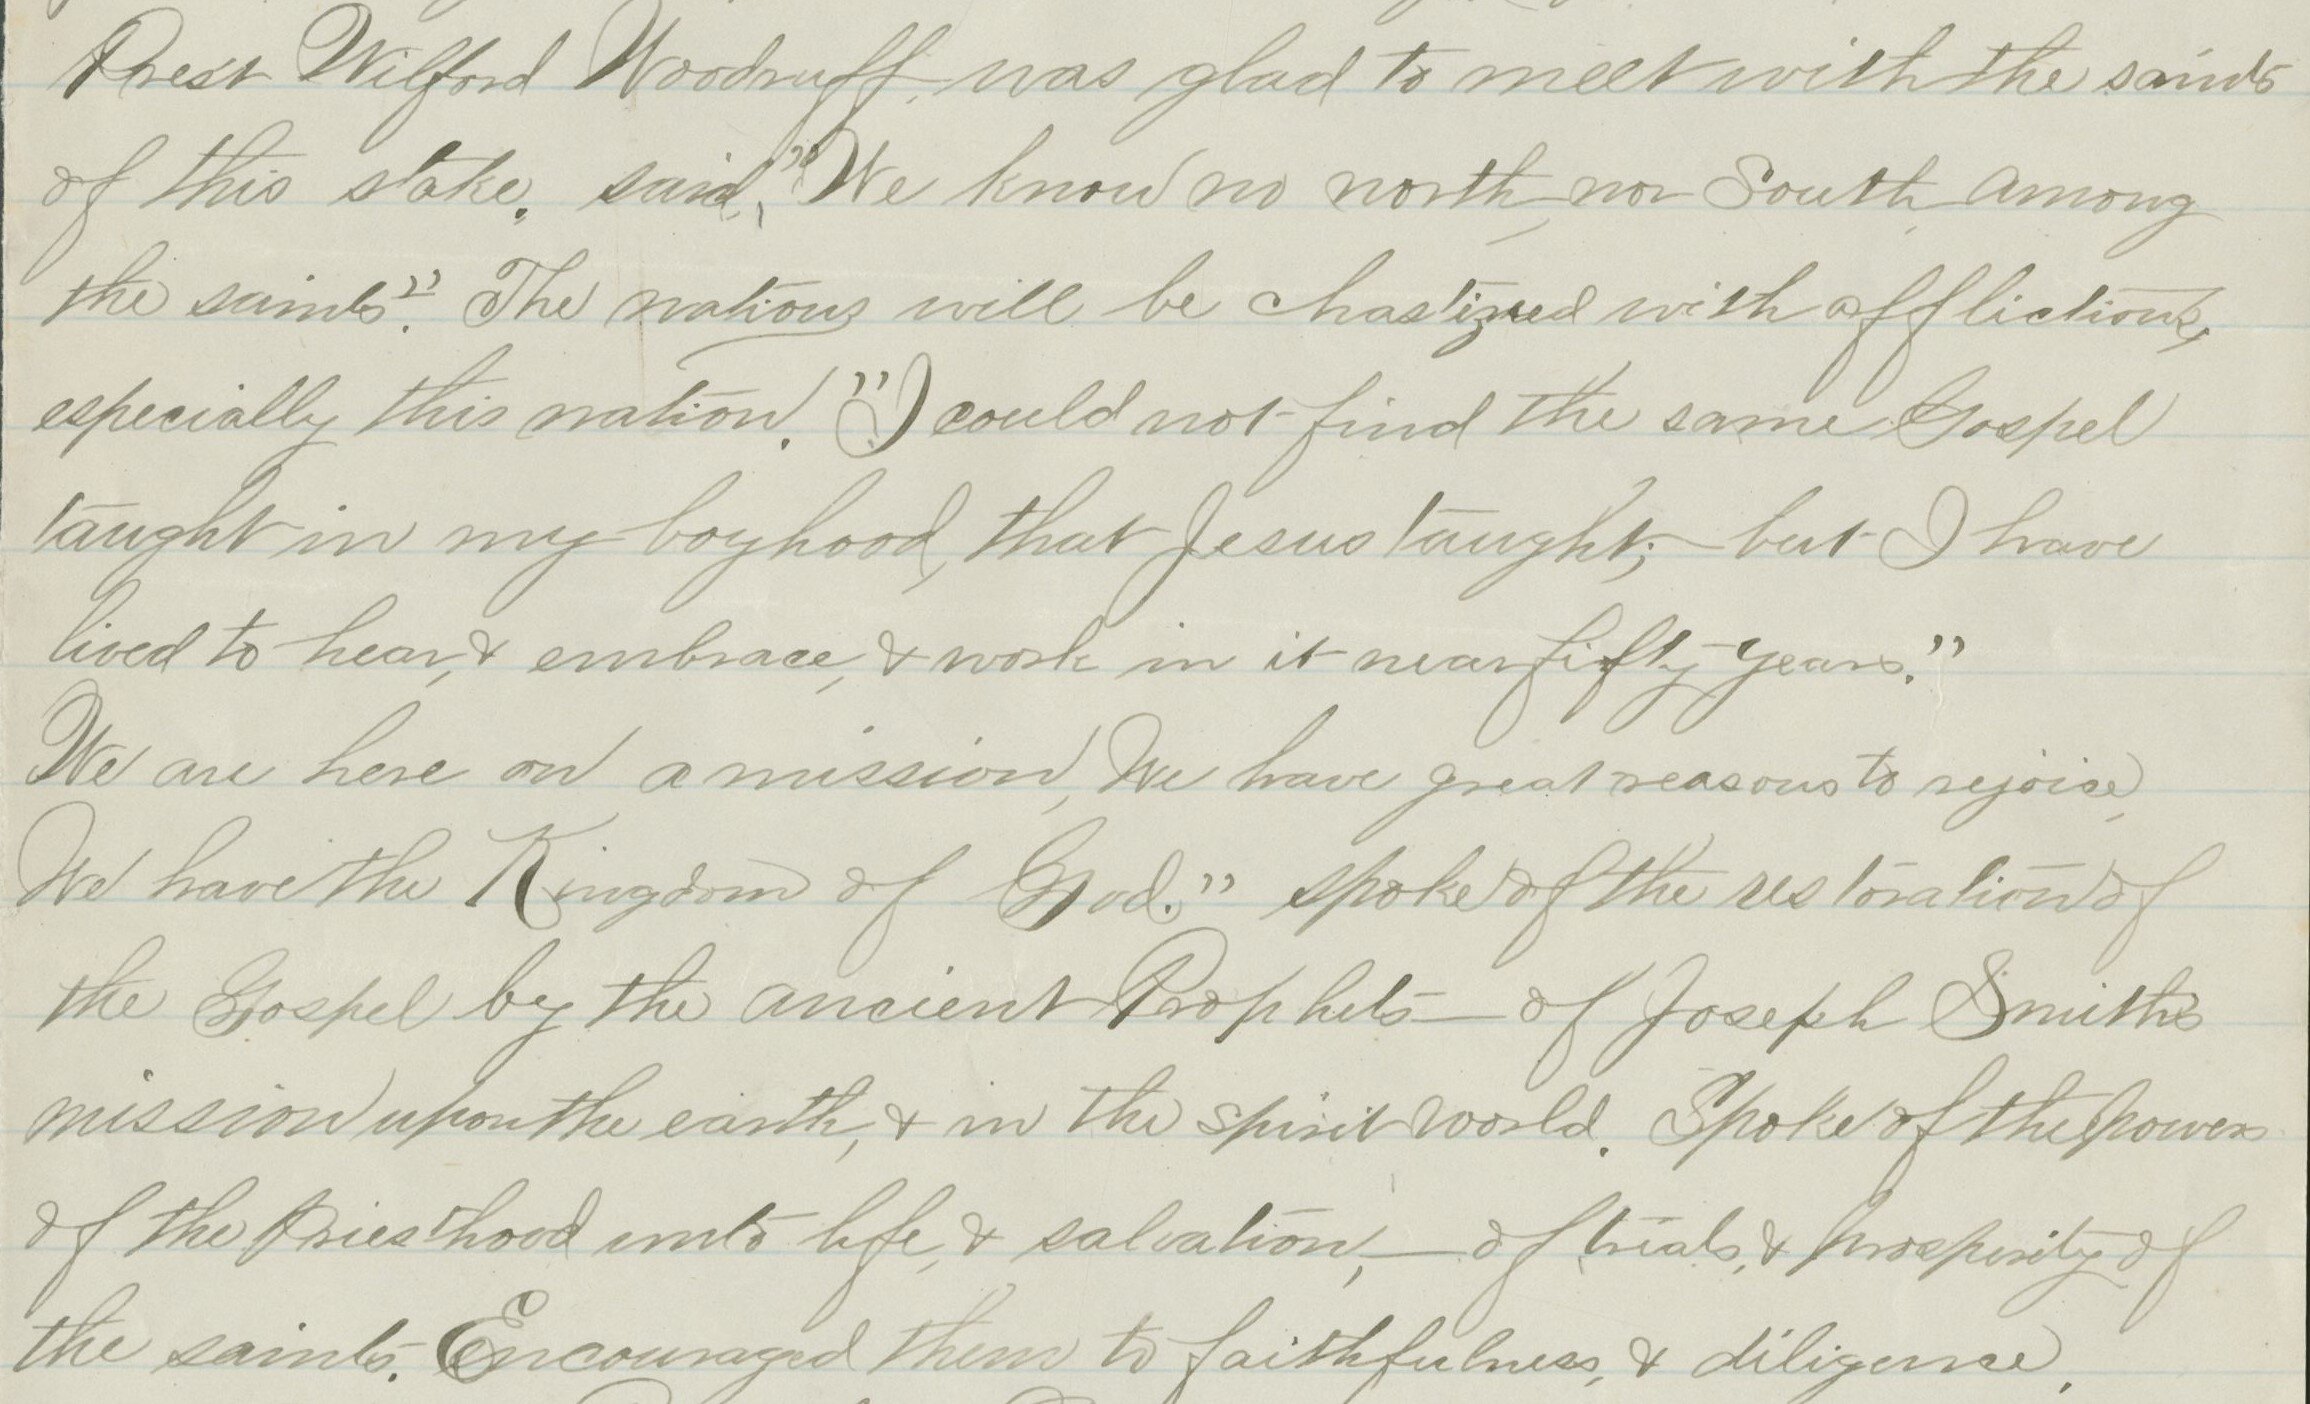 Prest Wilford Woodruff, was glad to meet with the saints
of this stake. said, "We know no north, nor South, among
the saints". The nations will be chastized with afflictions,
especially this nation. "I could not find the same Gospel
taught in my boyhood, that Jesus taught; but I have
lived to hear, & embrace, & work in it near fifty years."
We are here on a mission, We have great reasons to rejoice,
We have the Kingdom of God." spoke of the restoration of
the Gospel by the ancient Prophets — of Joseph Smith's
mission upon the earth, & in the spirit world. Spoke of the powers
of the Priesthood unto life, & salvation, — of trials, & prosperity of
the saints. Encouraged them to faithfulness, & diligence.